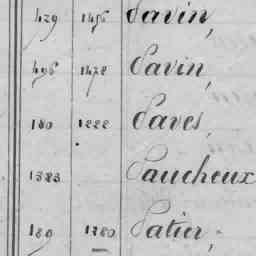 429 1456 Savin,
496 1472 Savin,
180 1222 Saves,
1383 Saucheux
189 1780 Satier,